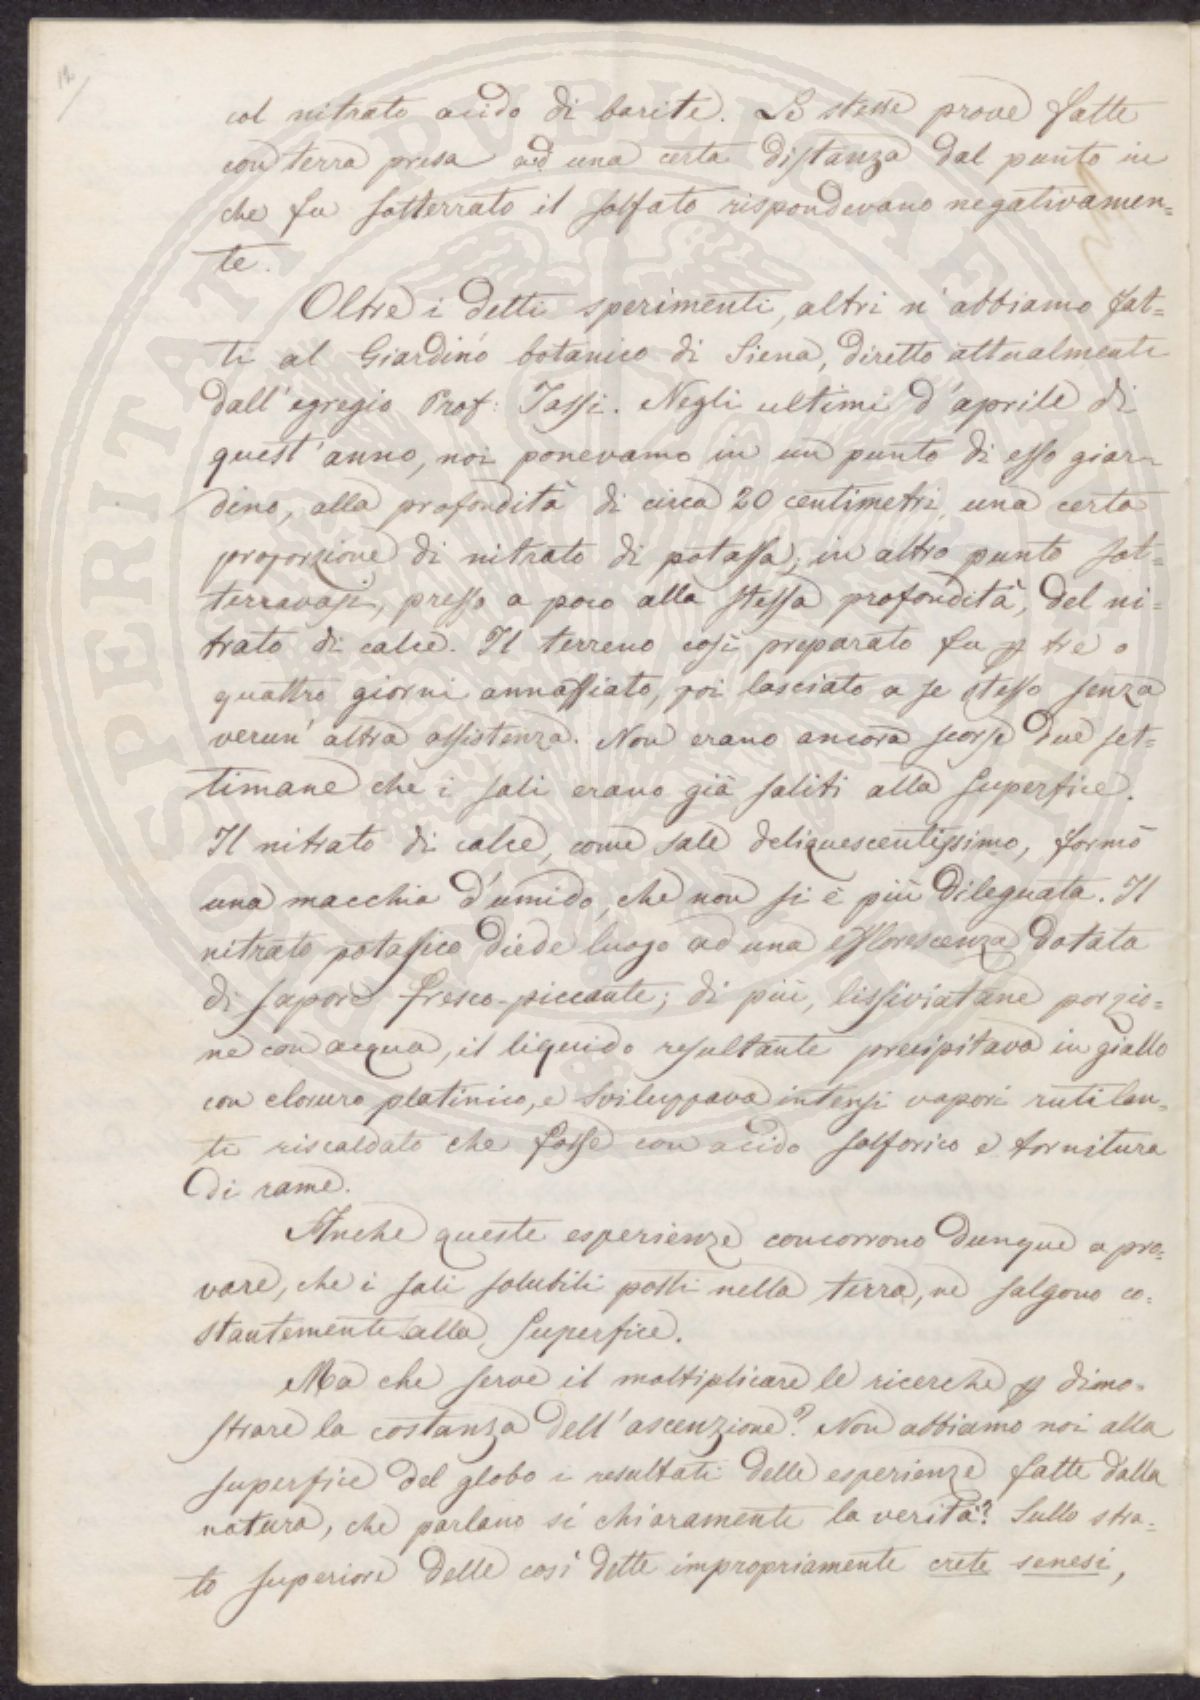 12/
col nitrato acido di barite. Le stesse prove fatte
con terra presa ad una certa distanza dal punto in
che fu sotterrato il solfato rispondevano negativamen=
te.
Oltre i detti sperimenti, altri n'abbiamo fat=
ti al Giardino botanico di Siena, diretto attualmente
dall'egregio Prof: Tassi. Negli ultimi d'aprile di
quest'anno, noi ponevamo in un punto di esso giar=
dino, alla profondità di circa 20 centimetri una certa
proporzione di nitrato di potassa; in altro punto sot=
terravasi, presso a poco alla stessa profondità, del ni=
trato di calce. Il terreno così preparato fu p tre o
quattro giorni annaffiato, poi lasciato a se stesso senza
verun'altra assistenza. Non erano ancora scorse due set=
timane che i sali erano già saliti alla superfice.
Il nitrato di calce, come sale deliquescentissimo, formò
una macchia d'umido, che non si è più dileguata. Il
nitrato potassico diede luogo ad una efflorescenza dotata
di sapore fresco-piccante; di più, lissiviatane porzio=
ne con acqua, il liquido resultante precipitava in giallo
con cloruro platinico, e sviluppava intensi vapori rutilan=
ti riscaldato che fosse con acido solforico e tornitura
di rame.
Anche queste esperienze concorrono dunque a pro=
vare, che i sali solubili posti nella terra, ne salgono co=
stantemente alla superfice.
Ma che serve il moltiplicare le ricerche p dimo=
strare la costanza dell'ascenzione? Non abbiamo noi alla
superfice del globo i resultati delle esperienze fatte dalla
natura, che parlano sì chiaramente la verità? Sullo stra=
to superiore delle così dette impropriamente crete senesi,